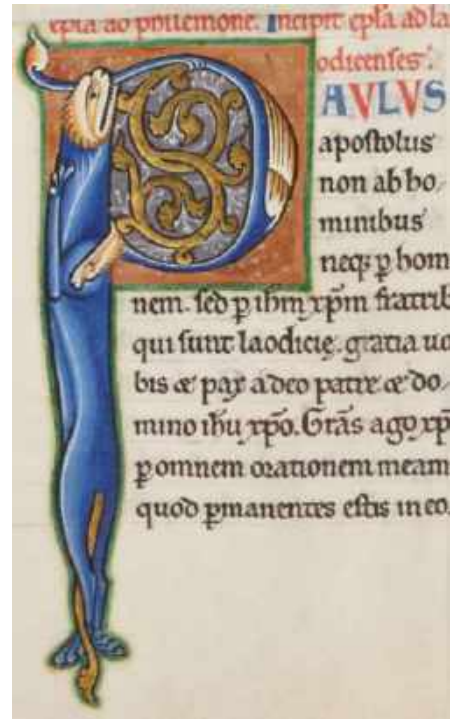 epła ad phılemone. Incipit epła ad la
odicenses.
PAVLVS
apostolus
non ab ho,
minibus
neqȝ ꝑ homı
nem. sed ꝑ ihm̄ xp̄m fratrib
qui sunt laodicię. gratia uo
bis & pax a deo patre & do,
mino ihu xp̄o. Grās ago xp̄
ꝑ omnem orationem meam
quod ꝑmanentes estis in eo.